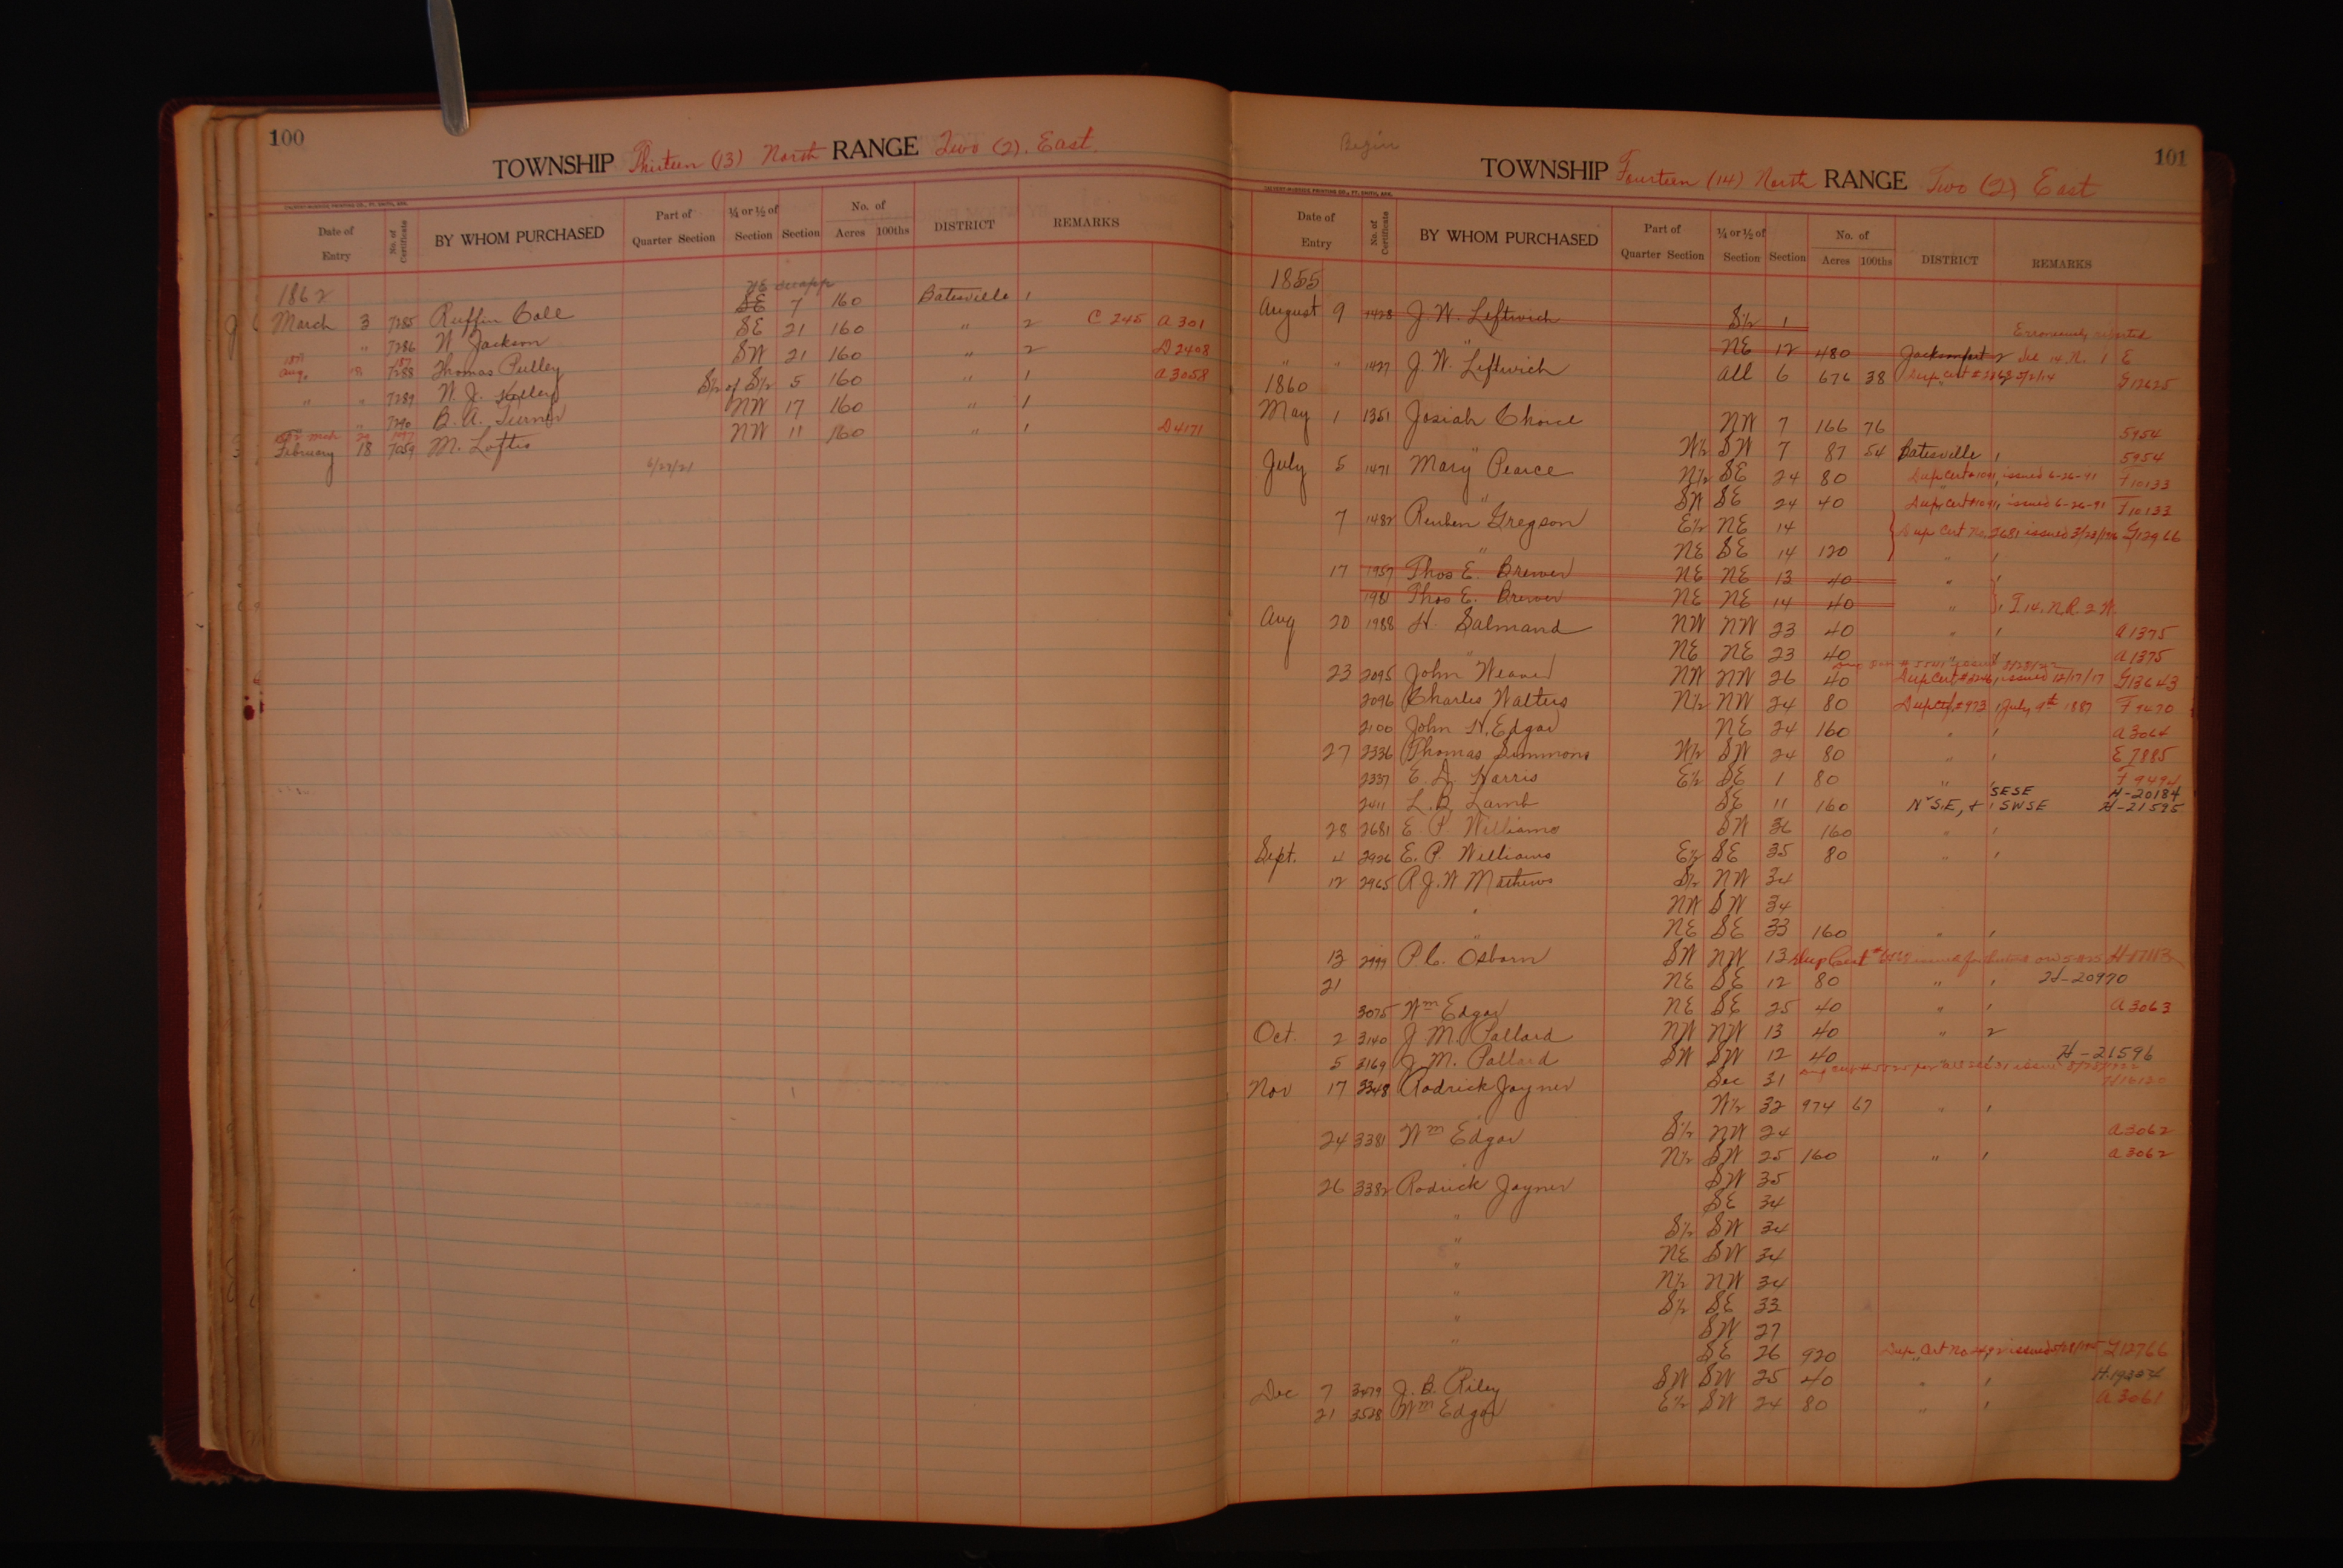 100
TOWNSHIP Thirteen (13) North RANGE Two (2). East.
Date of Entry No. of Certificate BY WHOM PURCHASED Part of Quarter Section ¼ or ½ of Section Section No. of Acres 100ths DISTRICT REMARKS
1862
March 3 7285 Ruffin Cole SE 7 160 Batesville 1
" 7286 W Jackson SE 21 160 " 2 C 245 A 301
Aug. 18 7288 Thomas Pulley SW 21 160 " 2 D 2408
" " 7289 N. J. Kelley S½ of S½ 5 160 " 1 A 3058
" 7290 B. A. Turner NW 17 160 " 1
February 18 7059 M. Loftis NW 11 160 " 1 D 4171
6/27/21
Begin
101
TOWNSHIP Fourteen (14) North RANGE Two (2) East
Date of Entry No. of Certificate BY WHOM PURCHASED Part of Quarter Section ¼ or ½ of Section Section No. of Acres 100ths DISTRICT REMARKS
1855
August 9 1428 J. W. Leftwich S½ 1
" NE 12 480 Jacksonport 2 Erroneously reported
" " 1427 J. W. Leftwich all 6 676 38 G 12625
1860
May 1 1351 Josiah Choice NW 7 166 76 5954
" W½ SW 7 87 54 Batesville 1 5954
July 5 1471 Mary Pearce N½ SE 24 80 Dup Cert #1091 issued 6-26-91 F 10133
" SW SE 24 40 Dup Cert #1091, issued 6-26-91 F 10133
7 1482 Reuben Gregson E½ NE 14 Dup Cert No. 2681 issued G 12966
" NE SE 14 120 " 1
17 1957 Thos E. Brewer NE NE 13 40 " 1
1981 Thos E. Brewer NE NE 14 40 " 1 T 14. N. R. 2 W.
Aug 20 1988 H. Salmand NW NW 23 40 " 1 A 1375
" NE NE 23 40 A 1375
23 2095 John Weaver NW NW 26 40 Dup Cert #3246, issued 12/17/17 G 13643
2096 Charles Walters N½ NW 24 80 Dup Ctf. #973 July 9th 1887 F 9470
2100 John H. Edgar NE 24 160 " 1 A 3064
27 2336 Thomas Simmons W½ SW 24 80 " 1 E 7885
2337 E. D. Harris E½ SE 1 80 " 1 F 9494
2411 L. B. Lamb SE 11 160 N½ S.E, & SESE SWSE H-20184 H-21595
28 2681 E. P. Williams SW 36 160 " 1
Sept. 4 2926 E. P. Williams E½ SE 35 80 " 1
12 2965 R. J. W Mathews S½ NW 34
" NW SW 34
" NE SE 33 160 " 1
13 2999 P. C. Osborn SW NW 13 Dup Cert H-17113
21 NE SE 12 80 " 1 H-20970
3075 Wm Edgar NE SE 25 40 " 1 A 3063
Oct. 2 3140 J. M. Pallard NW NW 13 40 " 2
5 3169 J. M. Pallard SW SW 12 40 H-21596
Nov 17 3348 Rodrick Joyner Sec 31
W½ 32 974 67 " 1
24 3381 Wm Edgar S½ NW 24 A 3062
" N½ SW 25 160 " 1 A 3062
26 3382 Rodrick Joyner SW 35
" SE 34
" S½ SW 34
" NE SW 34
" N½ NW 34
" S½ SE 33
" SW 27
" SE 26 920 G 12766
Dec 7 3479 J. B. Riley SW SW 25 40 " 1
21 3528 Wm Edgar E½ SW 24 80 " 1 A 3061